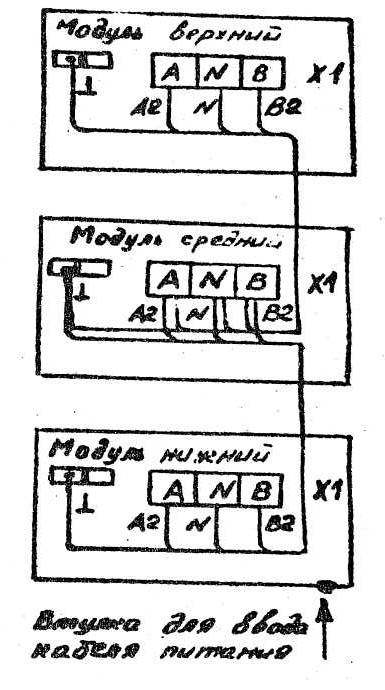 Модуль верхний
A N B X1
⊥ A2 N B2
Модуль средний
A N B X1
⊥ A2 N B2
Модуль нижний
A N B X1
⊥ A2 N B2
Втулка для ввода
кабеля питания